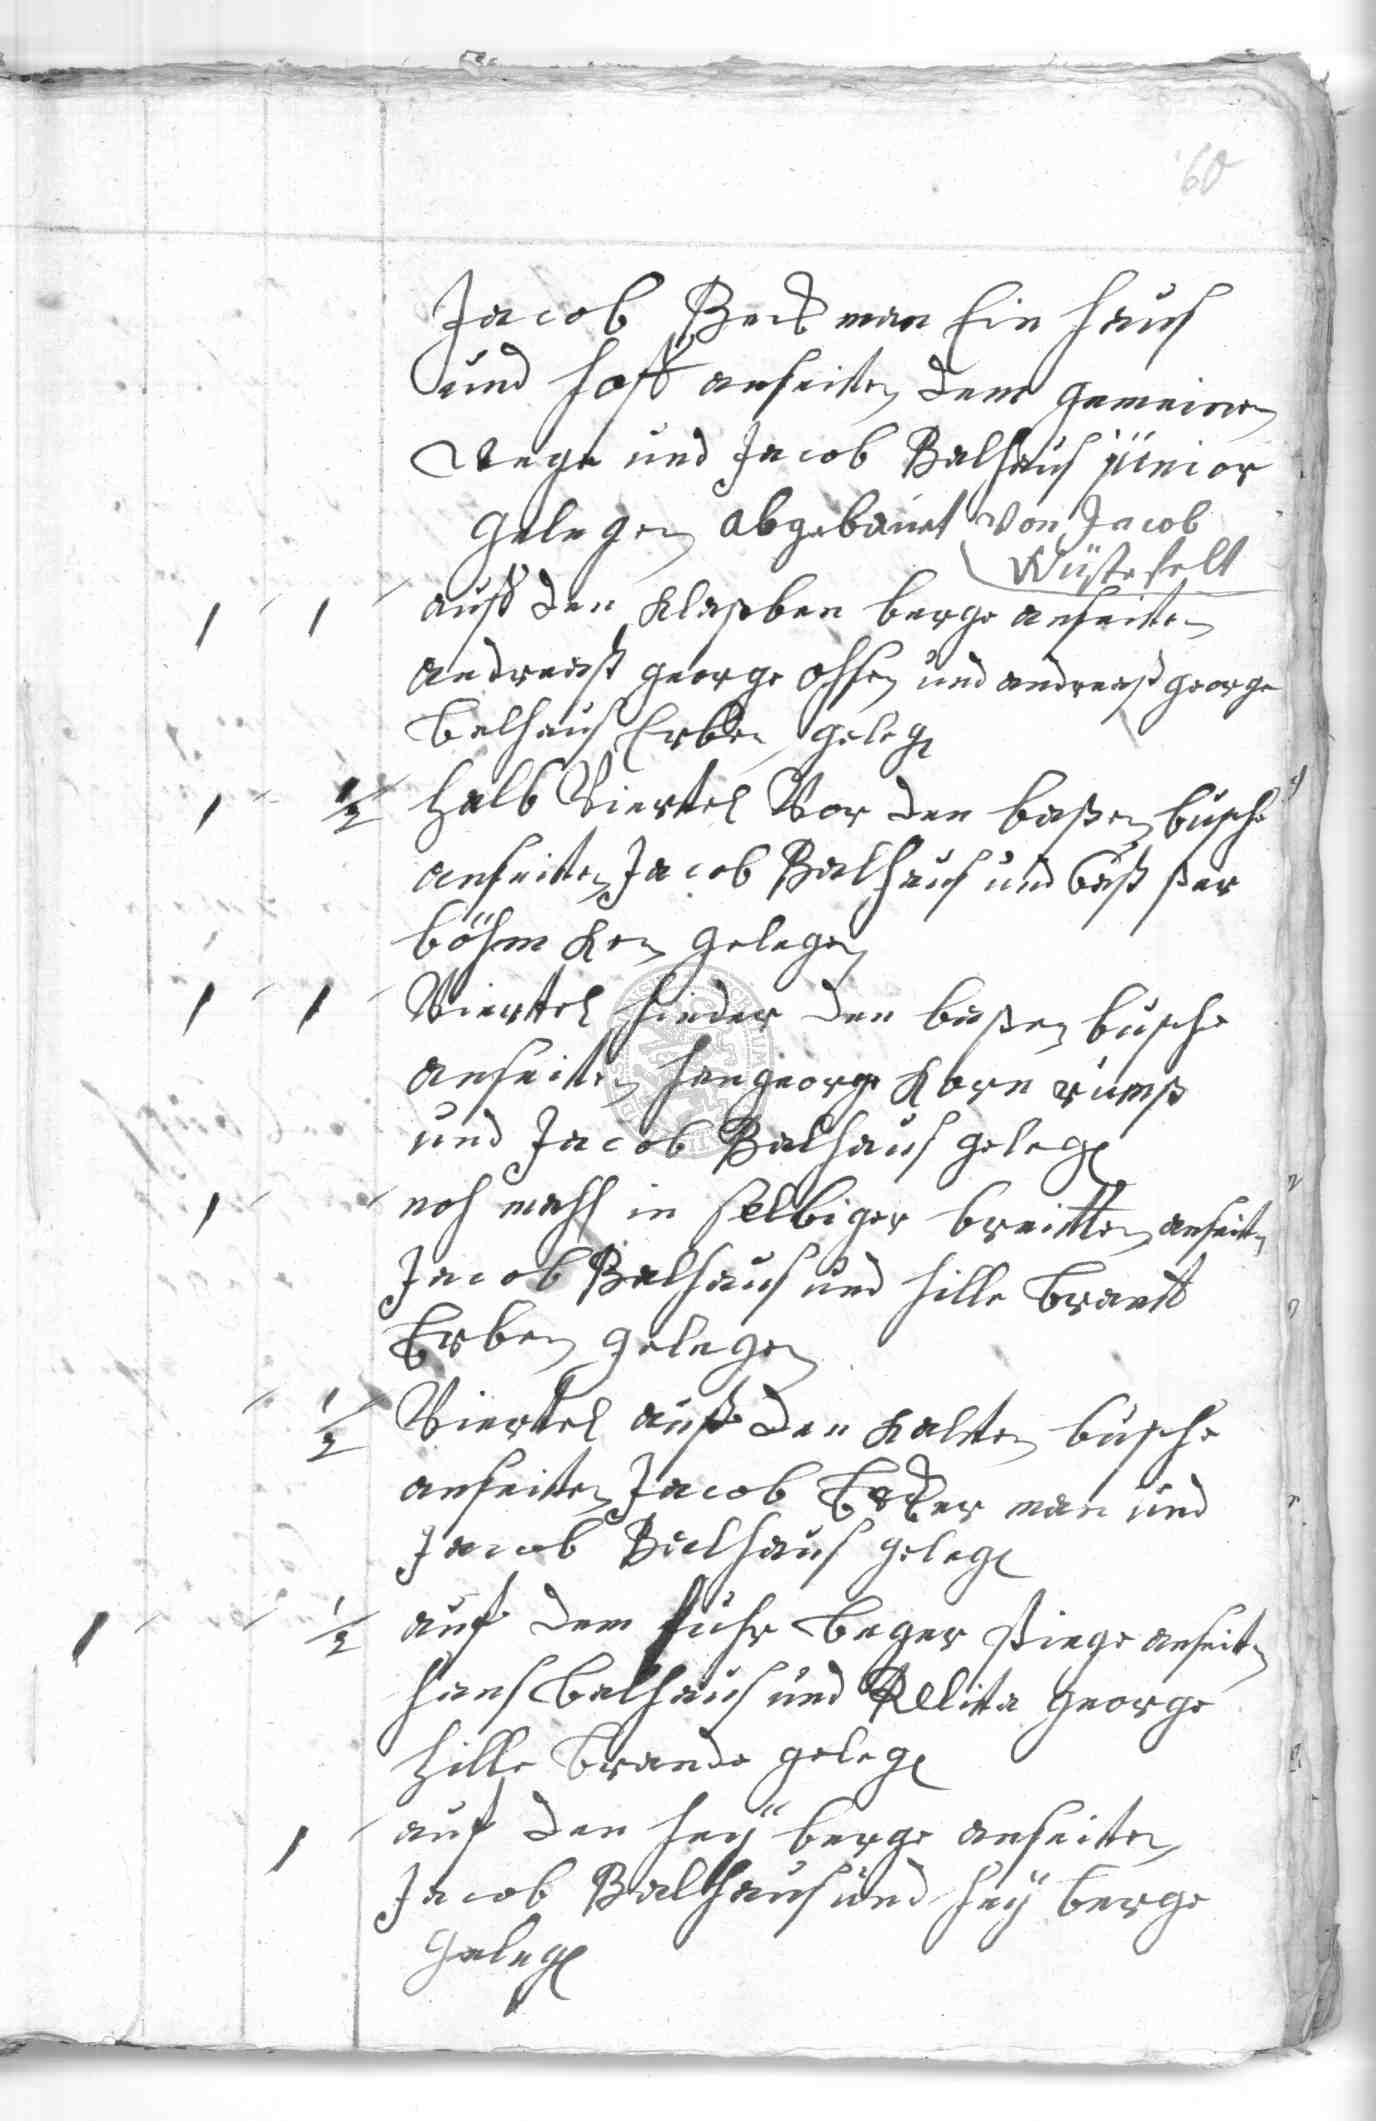 60
Jacob Beckman Ein Hauß
und Hoff anseiten dem gemeinen
Wege und Jacob Balhaus junior
gelegen abgebauet von Jacob
Wüstefelt
1 1 auff den berge anseiten
andreaß george Ohsen und andreaß george
balhaus Erben geleg
1 1/2 Halb Viertel Vor den busche
anseiten Jacob Balhaus und
gelegen
1 1 Viertel hinder den busche
anseiten Hangeorge Korn rumpf
und Jacob Balhaus geleg
1 noh mahl in selbiger breitten anseiten
Jacob Balhaus und Hille brant
Erben gelegen
1/2 Viertel auff den Kalten busche
anseiten Jacob man und
Jacob Balhaus geleg
1 1/2 auf dem stiege anseiten
Hans balhaus und Relita george
Hille brande geleg
1 auf den Heÿ berge anseiten
Jacob Balhaus und Heÿ berge
geleg